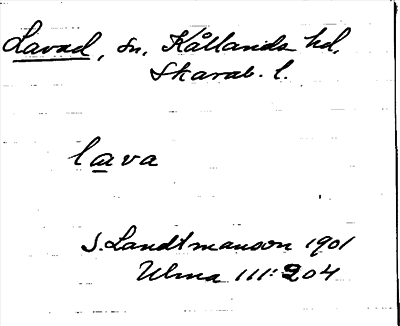 Lavad, sn, Kållands hd,
Skarab. l.
lava
S. Landtmanson 1901
Ulma 111:204